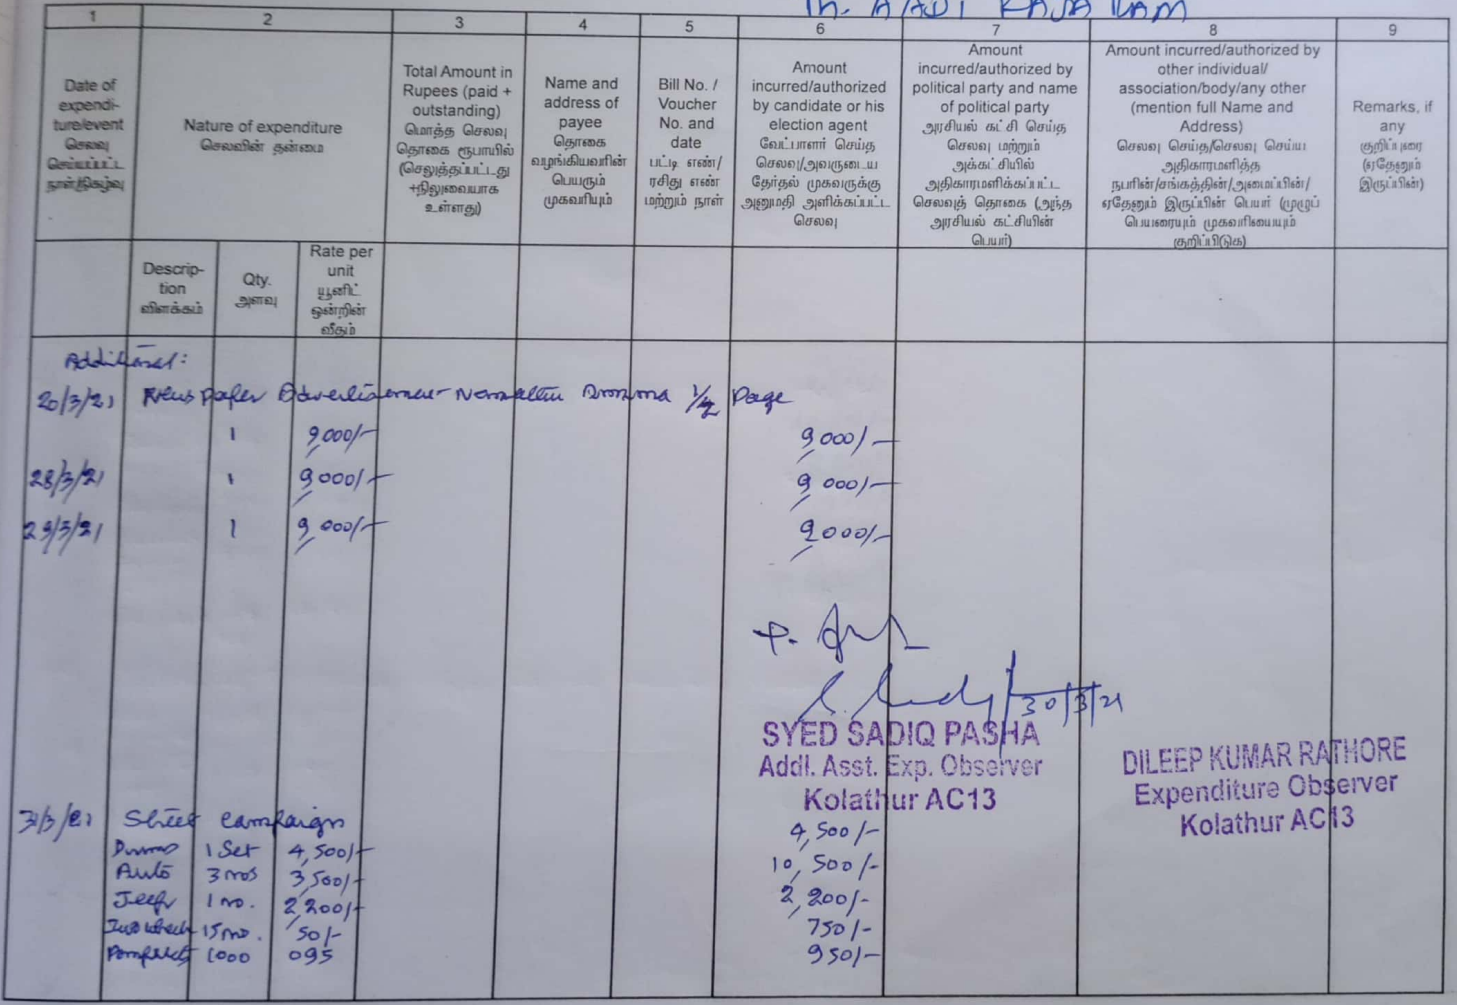 Th. AADI RAJARAM
1 2 3 4 5 6 7 8 9
Date of expendi-ture/event செலவு செய்யப்பட்ட நாள்/நிகழ்வு
Nature of expenditure
செலவின் தன்மை
Total Amount in Rupees (paid + outstanding) மொத்த செலவு தொகை ரூபாயில் (செலுத்தப்பட்டது +நிலுவையாக உள்ளது)
Name and address of payee தொகை வழங்கியவரின் பெயரும் முகவரியும்
Bill No. / Voucher No. and date பட்டி எண்/ ரசிது எண் மற்றும் நாள்
Amount incurred/authorized by candidate or his election agent வேட்பாளர் செய்த செலவு/அவருடைய தேர்தல் முகவருக்கு அனுமதி அளிக்கப்பட்ட செலவு
Amount incurred/authorized by political party and name of political party அரசியல் கட்சி செய்த செலவு மற்றும் அக்கட்சியில் அதிகாரமளிக்கப்பட்ட செலவுத் தொகை (அந்த அரசியல் கட்சியின் பெயர்)
Amount incurred/authorized by other individual/ association/body/any other (mention full Name and Address) செலவு செய்த/செலவு செய்ய அதிகாரமளித்த நபரின்/சங்கத்தின்/அமைப்பின்/ ஏதேனும் இருப்பின் பெயர் (முழுப் பெயரையும் முகவரியையும் குறிப்பிடுக)
Remarks, if any குறிப்புரை (ஏதேனும் இருப்பின்)
Descrip-tion விளக்கம்
Qty. அளவு
Rate per unit யூனிட் ஒன்றின் வீதம்
Additional:
20/3/21 News paper Advertisement Namathu Amma 1/2 Page
1 9,000/- 9,000/-
28/3/21 1 9,000/- 9,000/-
29/3/21 1 9,000/- 9,000/-
30/3/21
SYED SADIQ PASHA
Addl. Asst. Exp. Observer
Kolathur AC13
DILEEP KUMAR RATHORE
Expenditure Observer
Kolathur AC13
31/3/21 Street campaign
Drums 1 Set 4,500/- 4,500/-
Auto 3 nos 3,500/- 10,500/-
Jeep 1 no. 2,200/- 2,200/-
Two wheel 15 no. 50/- 750/-
Pamphlets 1000 095 950/-